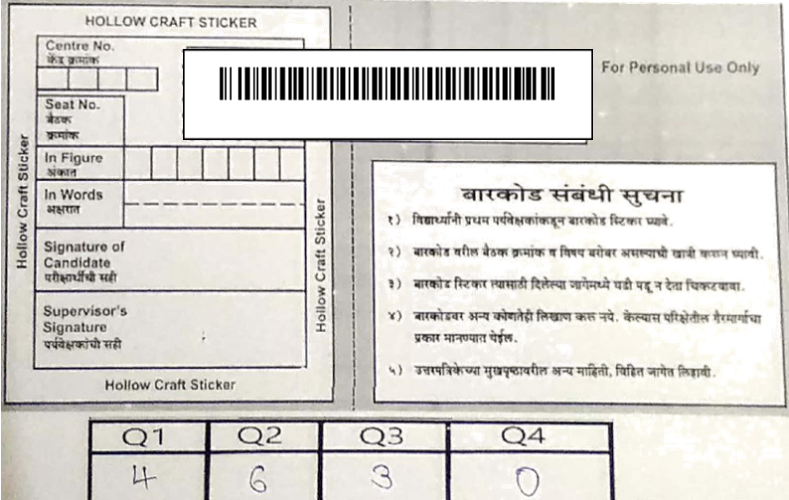 HOLLOW CRAFT STICKER
Centre No.
केंद्र क्रमांक
Seat No.
बैठक
क्रमांक
In Figure
अंकात
In Words
अक्षरात
Signature of
Candidate
परीक्षार्थीची सही
Supervisor's
Signature
पर्यवेक्षकांची सही
Hollow Craft Sticker
Hollow Craft Sticker
Hollow Craft Sticker
For Personal Use Only
बारकोड संबंधी सुचना
१) विद्यार्थ्यांनी प्रथम पर्यवेक्षकांकडून बारकोड स्टिकर घ्यावे.
२) बारकोड वरील बैठक क्रमांक व विषय बरोबर असल्याची खात्री करून घ्यावी.
३) बारकोड स्टिकर त्यासाठी दिलेल्या जागेमध्ये घडी पडू न देता चिकटवावा.
४) बारकोडवर अन्य कोणतेही लिखाण करू नये. केल्यास परिक्षेतील गैरमार्गाचा
प्रकार मानण्यात येईल.
५) उत्तरपत्रिकेच्या मुखपृष्ठावरील अन्य माहिती, विहित जागेत लिहावी.
Q1 Q2 Q3 Q4
4 6 3 0